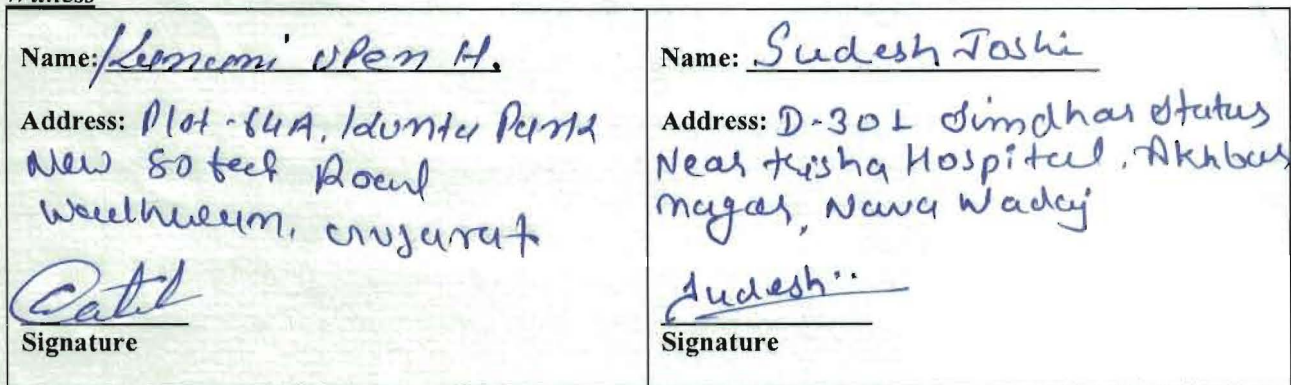 Witness
Name: Upen H.
Address: Plot-64A, Kunta Park
New 80 feet Road
Gujarat
Signature
Name: Sudesh Joshi
Address: D-301 Simdhar Status
Near Trisha Hospital, Akhbar
nagar, Nava Wadaj
Sudesh
Signature